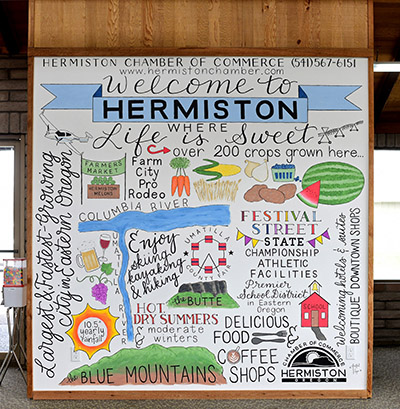 HERMISTON CHAMBER OF COMMERCE (541)567-6151
www.hermistonchamber.com
Welcome to
HERMISTON
WHERE
Life is Sweet
over 200 crops grown here...
Largest & Fastest-Growing
city in Eastern Oregon
FARMERS
MARKET
HERMISTON
MELONS
Farm
City
Pro
Rodeo
COLUMBIA RIVER
UMATILLA RIVER
Enjoy
skiing
kayaking
& hiking
UMATILLA
COUNTY FAIR
FESTIVAL
STREET
STATE
CHAMPIONSHIP
ATHLETIC
FACILITIES
Premier
School District
in Eastern
Oregon
SCHOOL
Welcoming hotels & suites
BOUTIQUE DOWNTOWN SHOPS
the BUTTE
10.5"
yearly
rainfall
HOT
DRY SUMMERS
& moderate
winters
DELICIOUS
FOOD &
COFFEE
SHOPS
the BLUE MOUNTAINS
CHAMBER OF COMMERCE
HERMISTON
OREGON